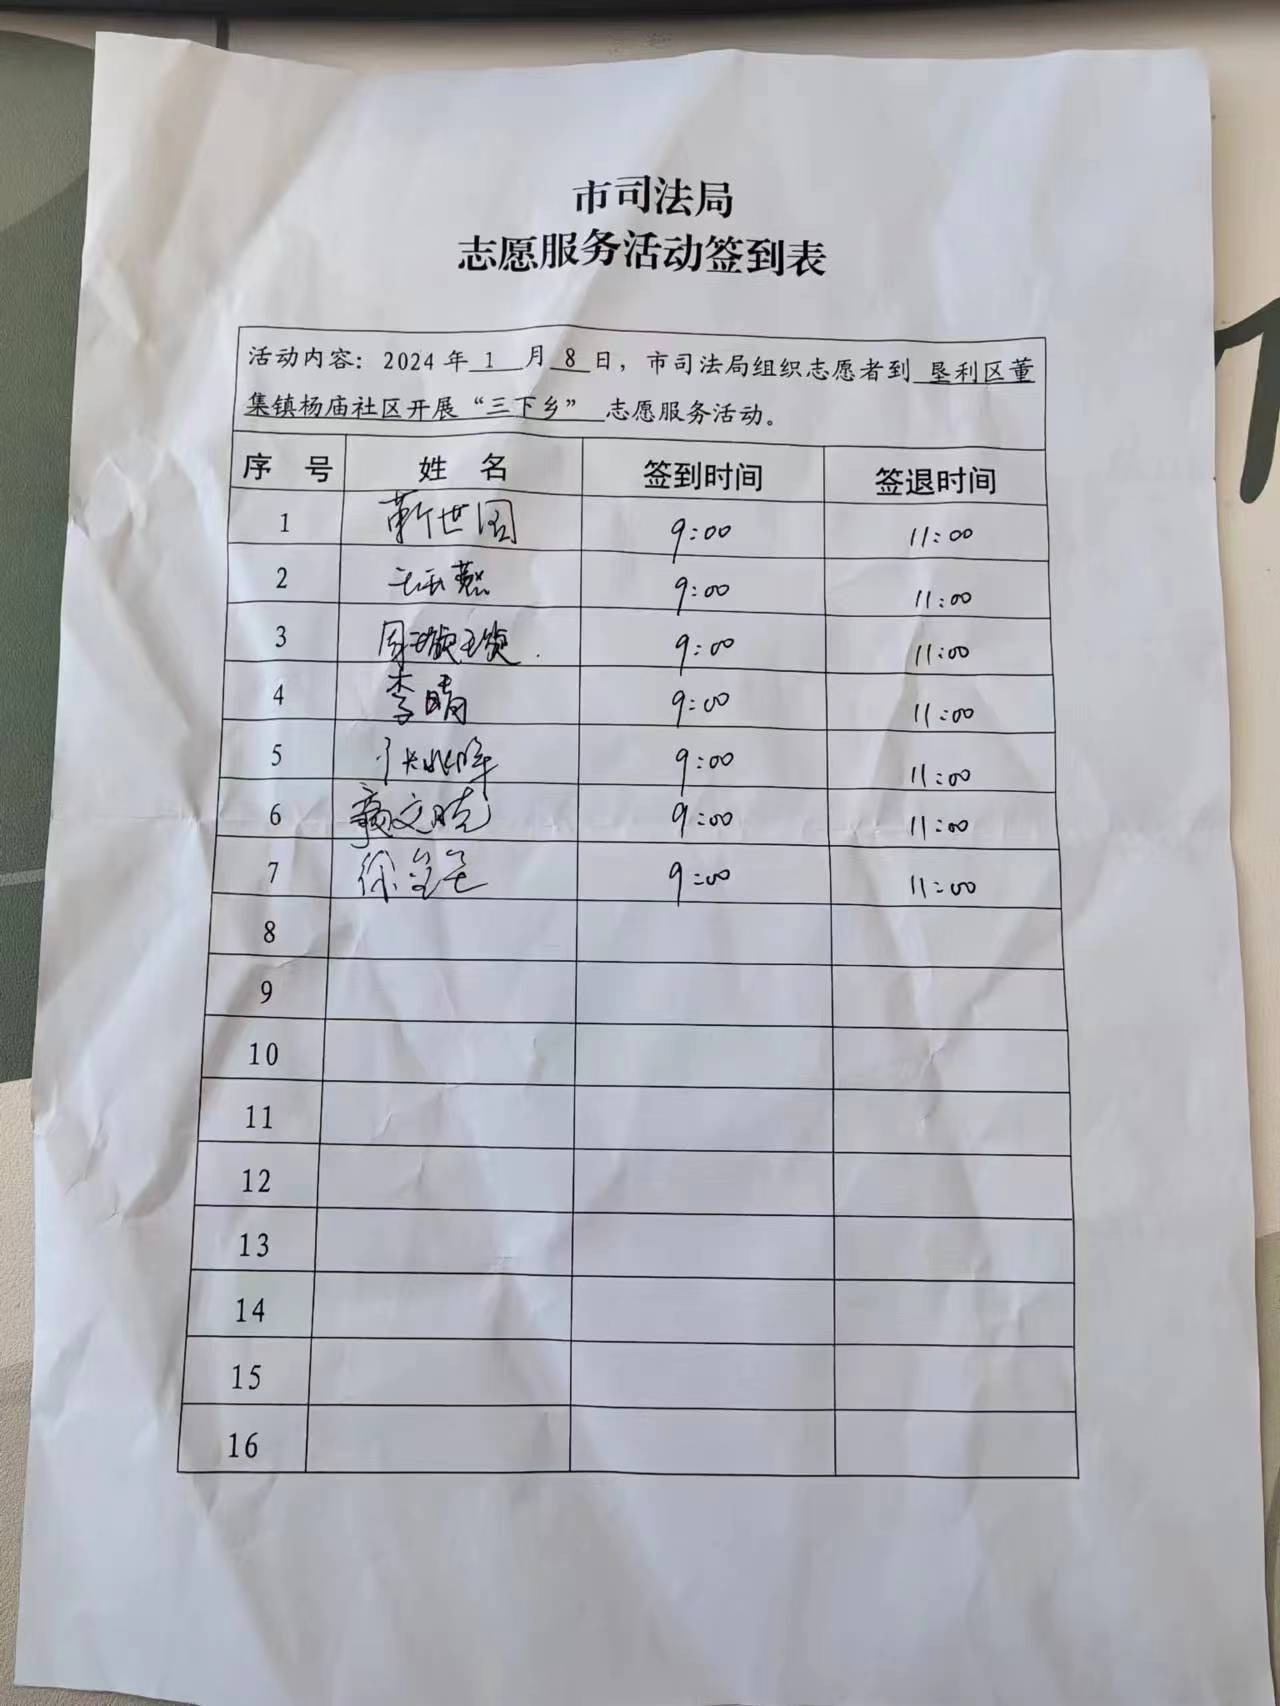 市司法局
志愿服务活动签到表
活动内容：2024年 1 月 8 日，市司法局组织志愿者到 垦利区董
集镇杨庙社区开展“三下乡” 志愿服务活动。
序 号 姓 名 签到时间 签退时间
1 靳世阁 9:00 11:00
2 9:00 11:00
3 周璇璇 9:00 11:00
4 李晴 9:00 11:00
5 9:00 11:00
6 颜文晓 9:00 11:00
7 徐 9:00 11:00
8
9
10
11
12
13
14
15
16